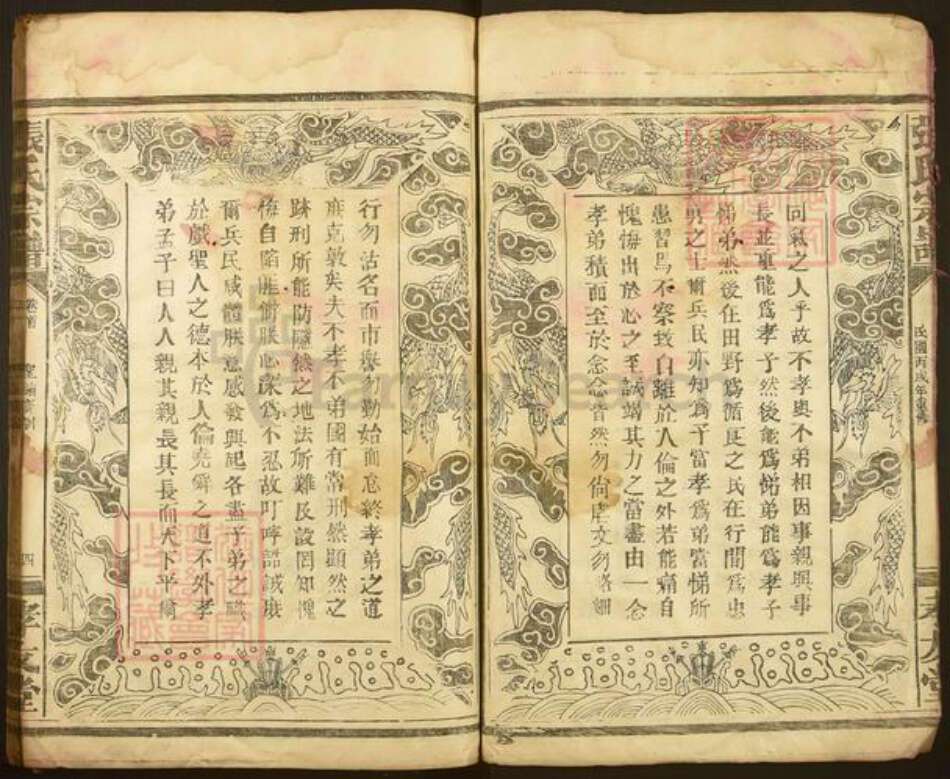 張氏宗譜
民國丙戌年重修
孝友堂
同氣之人乎故不孝與不弟相因事親與事
長並重能為孝子然後能為悌弟能為孝子
悌弟然後在田野為循良之民在行間為忠
勇之士爾兵民亦知為子當孝為弟當悌所
患習焉不察致自離於人倫之外若能痛自
愧悔出於心之至誠竭其力之當盡由一念
孝弟積而至於念念皆然勿尚虛文勿略細
行勿沽名而市譽勿勤始而怠終孝弟之道
庶克敦矣夫不孝不弟國有常刑然顯然之
跡刑所能防隱然之地法所難及設罔知愧
悔自陷匪僻朕心深為不忍故叮嚀誥誡庶
爾兵民咸體朕意感發興起各盡子弟之職
於戲聖人之德本於人倫堯舜之道不外孝
弟孟子曰人人親其親長其長而天下平爾
張氏宗譜
卷首
四
孝友堂